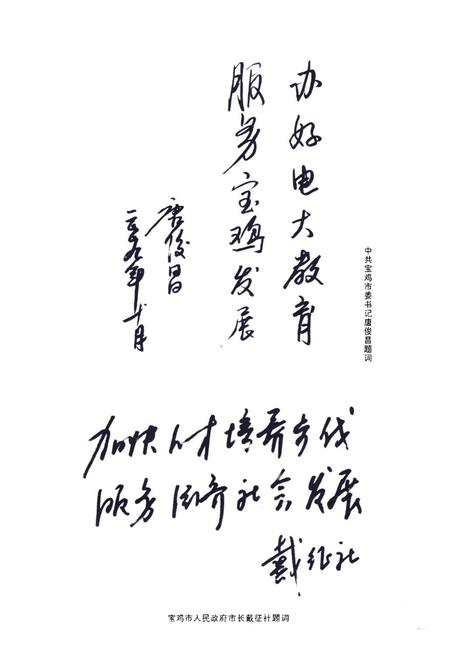 办好电大教育
服务宝鸡发展
唐俊昌
二〇〇九年十月
中共宝鸡市委书记唐俊昌题词
加快人才培养步伐
服务经济社会发展
戴征社
宝鸡市人民政府市长戴征社题词